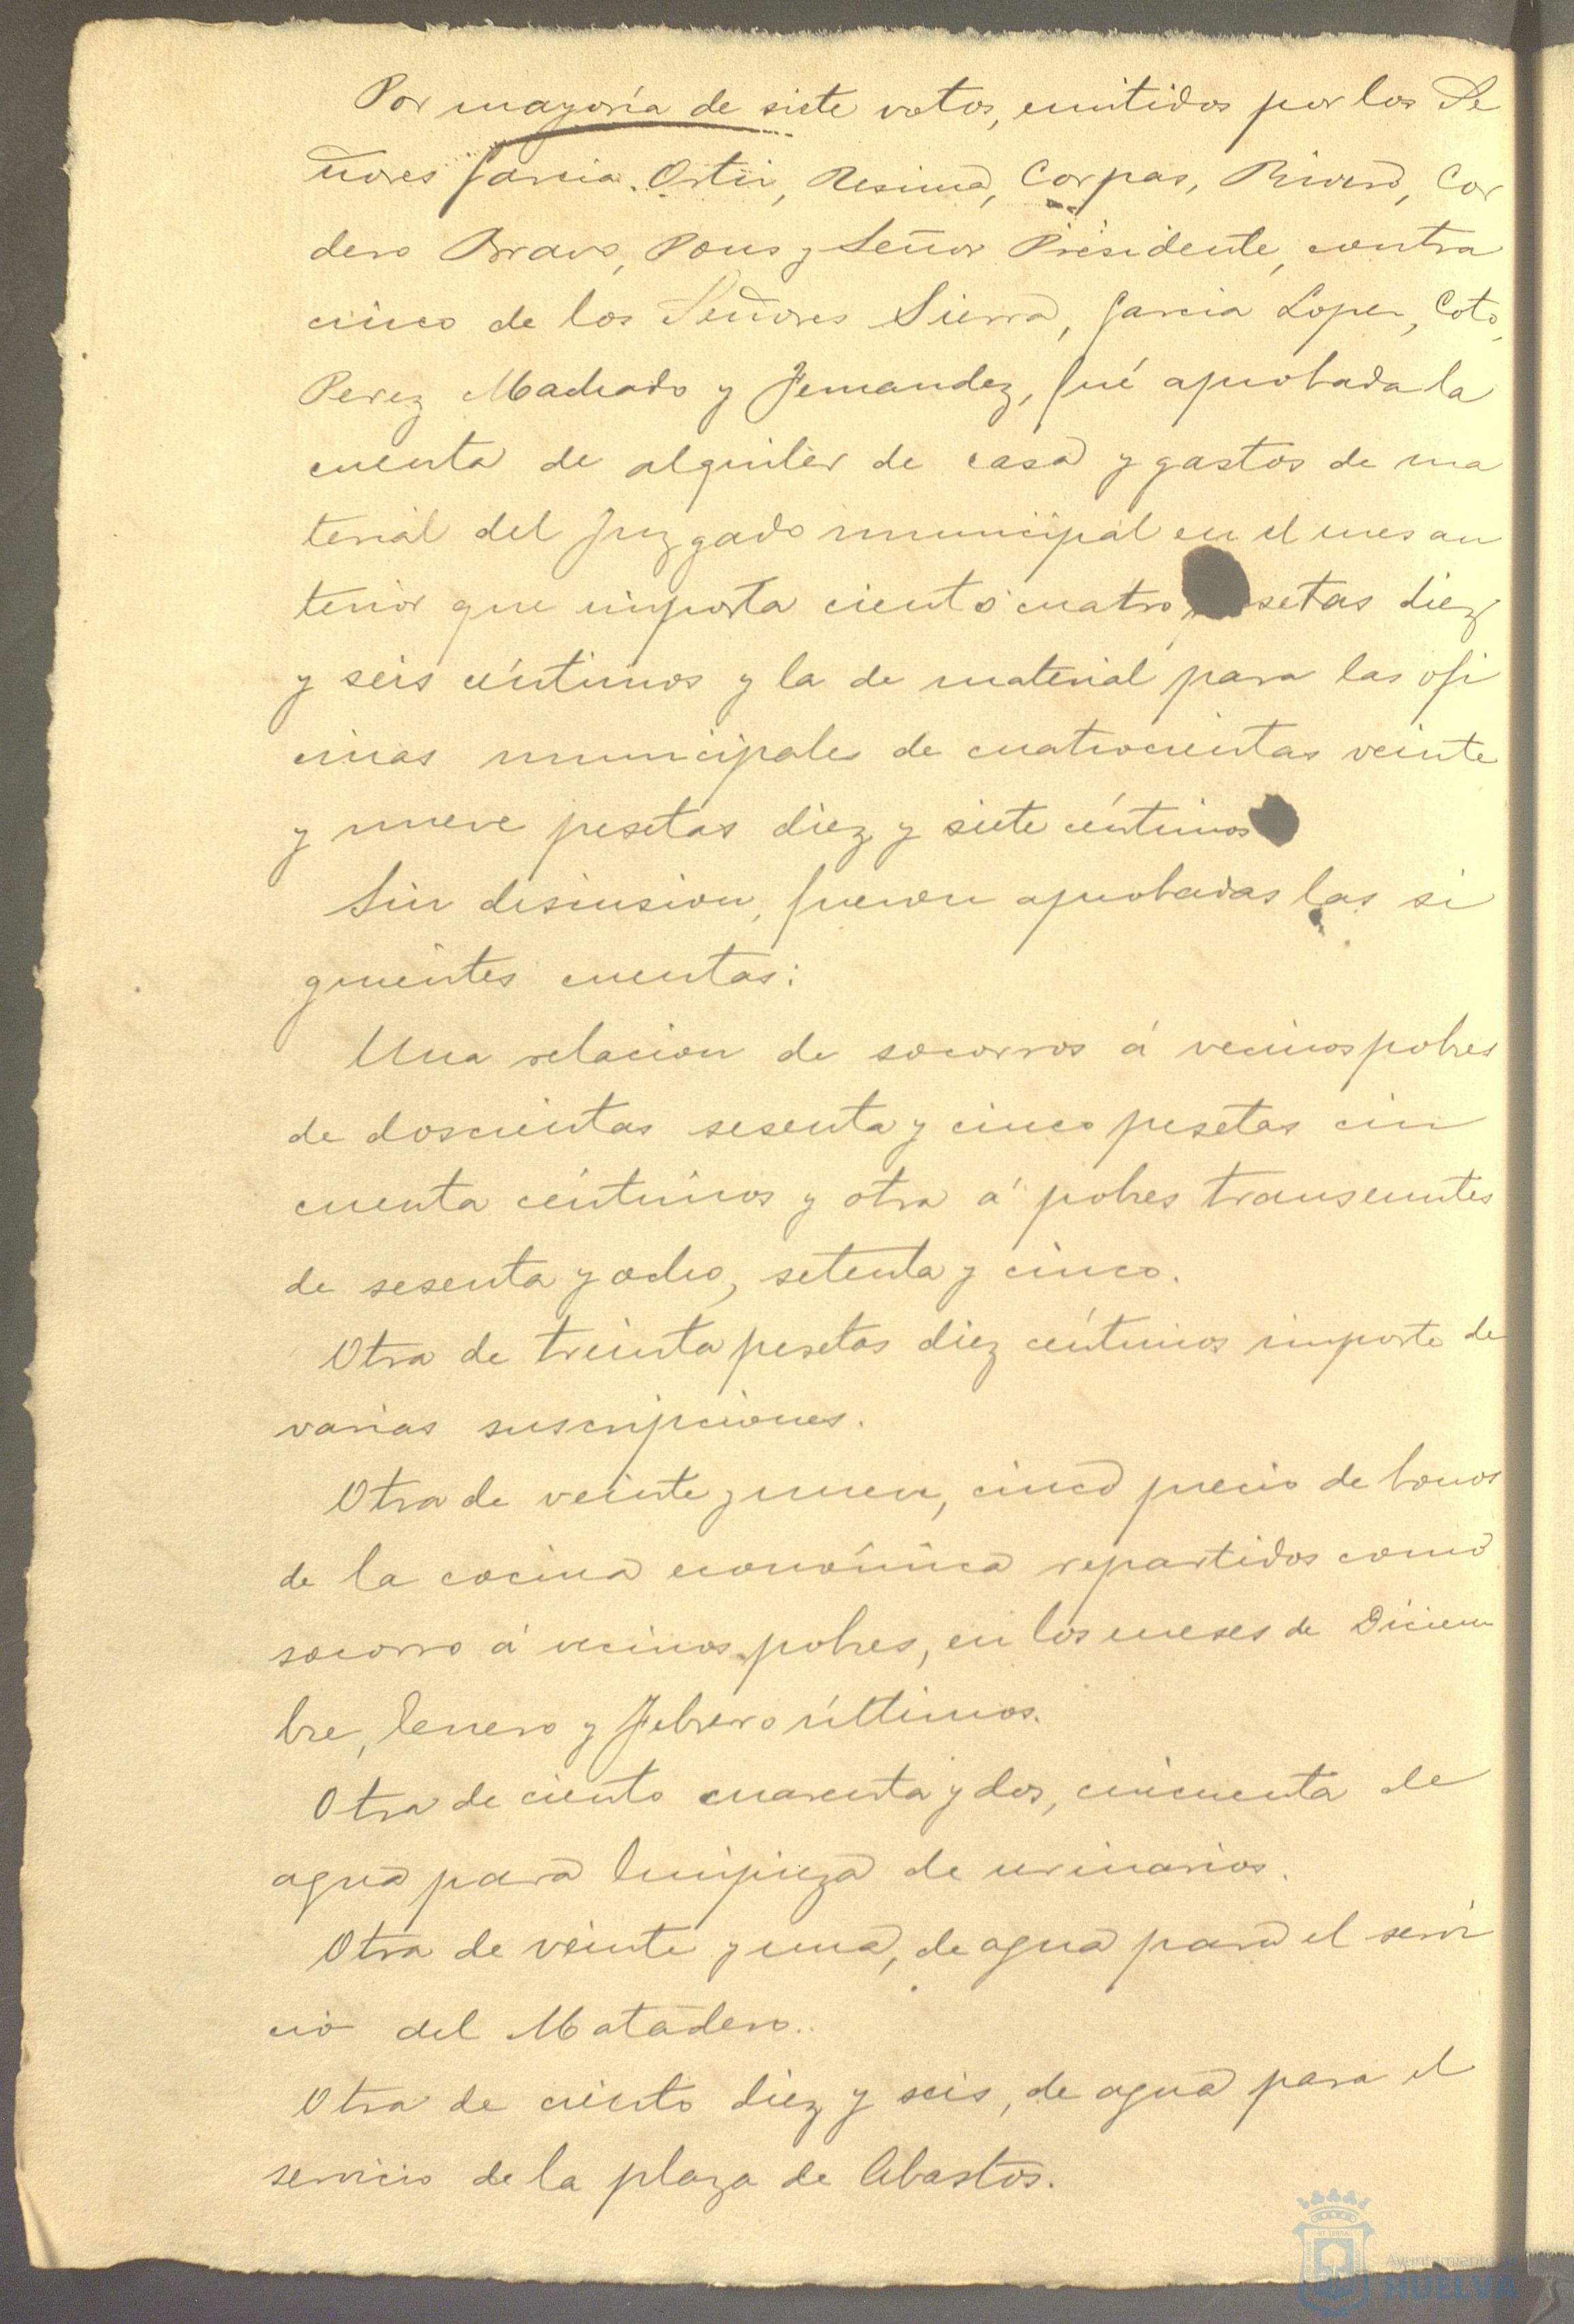 Por mayoría de siete votos, emitidos por los Se
ñores Garcia Ortiz, Resimà, Corpas, Rivero, Cor
dero Bravo, Pons y Señor Presidente, contra
cinco de los Señores Sierra, Garcia Lopez, Coto,
Perez Machado y Fernandez, fué aprobada la
cuenta de alquiler de casa y gastos de ma
terial del Juzgado municipal en el mes an
terior que importa ciento cuatro pesetas diez
y seis céntimos y la de material para las ofi
cinas municipales de cuatrocientas veinte
y nueve pesetas diez y siete céntimos
Sin discusion, fueron aprobadas las si
guientes cuentas:
Una relacion de socorros á vecinos pobres
de doscientas sesenta y cinco pesetas cin
cuenta céntimos y otra á pobres transeuntes
de sesenta y ocho, setenta y cinco.
Otra de treinta pesetas diez céntimos importe de
varias suscripciones.
Otra de veinte y nueve, cinco precio de bonos
de la cocina económica repartidos como
socorro á vecinos pobres, en los meses de Diciem
bre, Enero y Febrero últimos.
Otra de ciento cuarenta y dos, cincuenta de
agua para limpieza de urinarios.
Otra de veinte y una, de agua para el servi
cio del Matadero.
Otra de ciento diez y seis, de agua para el
servicio de la plaza de Abastos.
Ayuntamiento
HUELVA